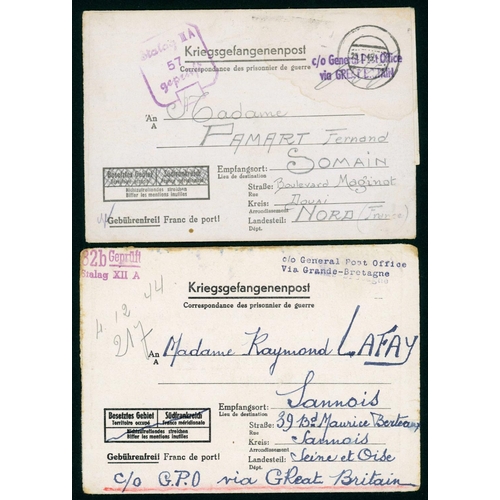 Stalag II A
57
geprüft
Kriegsgefangenenpost
Correspondance des prisonnier de guerre
c/o General Post Office
via
An
A
Madame
PAMART Fernand
Besetztes Gebiet
Territoire occupé
Südfrankreich
France méridionale
Nichtzutreffendes streichen
Biffer les mentions inutiles
Gebührenfrei! Franc de port!
Empfangsort: SOMAIN
Lieu de destination
Straße: Boulevard Maginot
Rue
Kreis: Douai
Arrondissement
Landesteil: NORD (France)
Dépt.
32b Geprüft
Stalag XII A
c/o General Post Office
Via Grande-Bretagne
Kriegsgefangenenpost
Correspondance des prisonnier de guerre
4.12 44
217
An
A
Madame Raymond LAFAY
Besetztes Gebiet
Territoire occupé
Südfrankreich
France méridionale
Nichtzutreffendes streichen
Biffer les mentions inutiles
Gebührenfrei! Franc de port!
Empfangsort: Sannois
Lieu de destination
Straße: 39 Bd Maurice Berteaux
Rue
Kreis: Sannois
Arrondissement
Landesteil: Seine et Oise
Dépt.
c/o G.P.O via GReat Britain